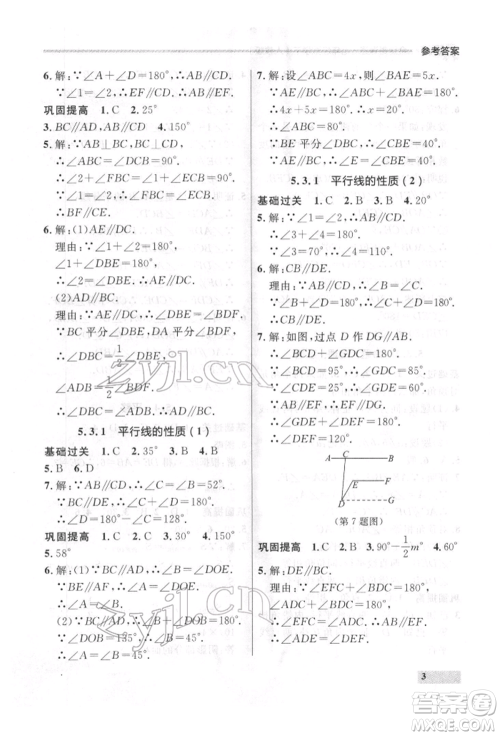 参考答案
6.解：∵∠A＋∠D＝180°，∴AB∥CD.
∵∠B＋∠D＝180°，∴AB∥EF.
∴AB∥EF.
巩固提高　1.C　2.25°
3.BC∥AD，AB∥CD　4.150°
5.解：∵AB⊥BC，BC⊥CD，
∴∠ABC＝∠DCB＝90°.
∵∠1＝∠2，∴∠CBE＝∠BCF.
∴BE∥CF.
6.解：(1)AE∥DC.
理由：∵∠1＋∠2＝180°，
∠1＋∠DBE＝180°，
∴∠2＝∠DBE，∴AE∥DC.
(2)AD∥BC.
理由：∵AE∥DC，∴∠DBE＝∠BDF.
∵BC平分∠DBE，DA平分∠BDF，
∴∠DBC＝1/2∠DBE，
∠ADB＝1/2∠BDF.
∴∠DBC＝∠ADB，∴AD∥BC.
5.3.1　平行线的性质(1)
基础过关　1.C　2.35°　3.B　4.B
5.B　6.D
7.解：∵BC∥AD，∴∠B＝∠A＝52°.
∵BE∥AF，∴∠B＋∠D＝180°.
∴∠D＝180°－∠B＝128°.
巩固提高　1.C　2.C　3.C　4.150°
5.58°
6.解：(1)∵BC∥AD，∴∠B＝∠DOE.
∵BE∥AF，∴∠A＝∠DOE.
∴∠A＝∠B.
(2)∵BC∥AD，∴∠DOB＋∠B＝180°.
∵∠DOB＝135°，∴∠B＝45°.
∵∠A＝∠B，∴∠A＝45°.
7.解：设∠ABC＝4x，则∠BAE＝5x.
∵AE∥BC，∴∠ABC＋∠BAE＝180°.
∴4x＋5x＝180°，∴x＝20°.
∴∠ABC＝80°.
∵BE平分∠ABC，∴∠EBC＝40°.
∵AE∥BC，∴∠E＝∠EBC＝40°.
5.3.1　平行线的性质(2)
基础过关　1.C　2.B　3.B　4.20°
5.解：∵∠1＝∠2，∴a∥b.
∴∠3＋∠4＝180°.
∴∠4＝180°－∠3＝100°.
6.解：CB∥DE.
理由：∵AB∥CD，∴∠B＝∠C.
∵∠B＋∠D＝180°，
∴∠C＋∠D＝180°，∴CB∥DE.
7.解：如图，过点D作DG∥AB.
∴∠BCD＋∠GDC＝180°.
∵∠BCD＝95°，
∴∠GDC＝180°－∠BCD＝85°.
∵∠CDE＝25°，
∴∠GDE＝∠GDC－∠CDE＝60°.
∵AB∥EF，∴DG∥EF.
∴∠DEF＋∠GDE＝180°.
∴∠DEF＝180°－∠GDE＝120°.
A C B
E F
D G
(第7题图)
巩固提高　1.C　2.B　3.90°－1/2m°　4.60°
5.解：DE∥BC.
理由：∵∠EFC＋∠EFD＝180°，
∠EFC＋∠ADC＝180°，
∴∠ADC＝∠EFD，∴AB∥EF.
∴∠ADE＝∠DEF.
∵∠DEF＝∠B，∴∠ADE＝∠B.
∴DE∥BC.
3
zyjl.cn
zyjl.cn